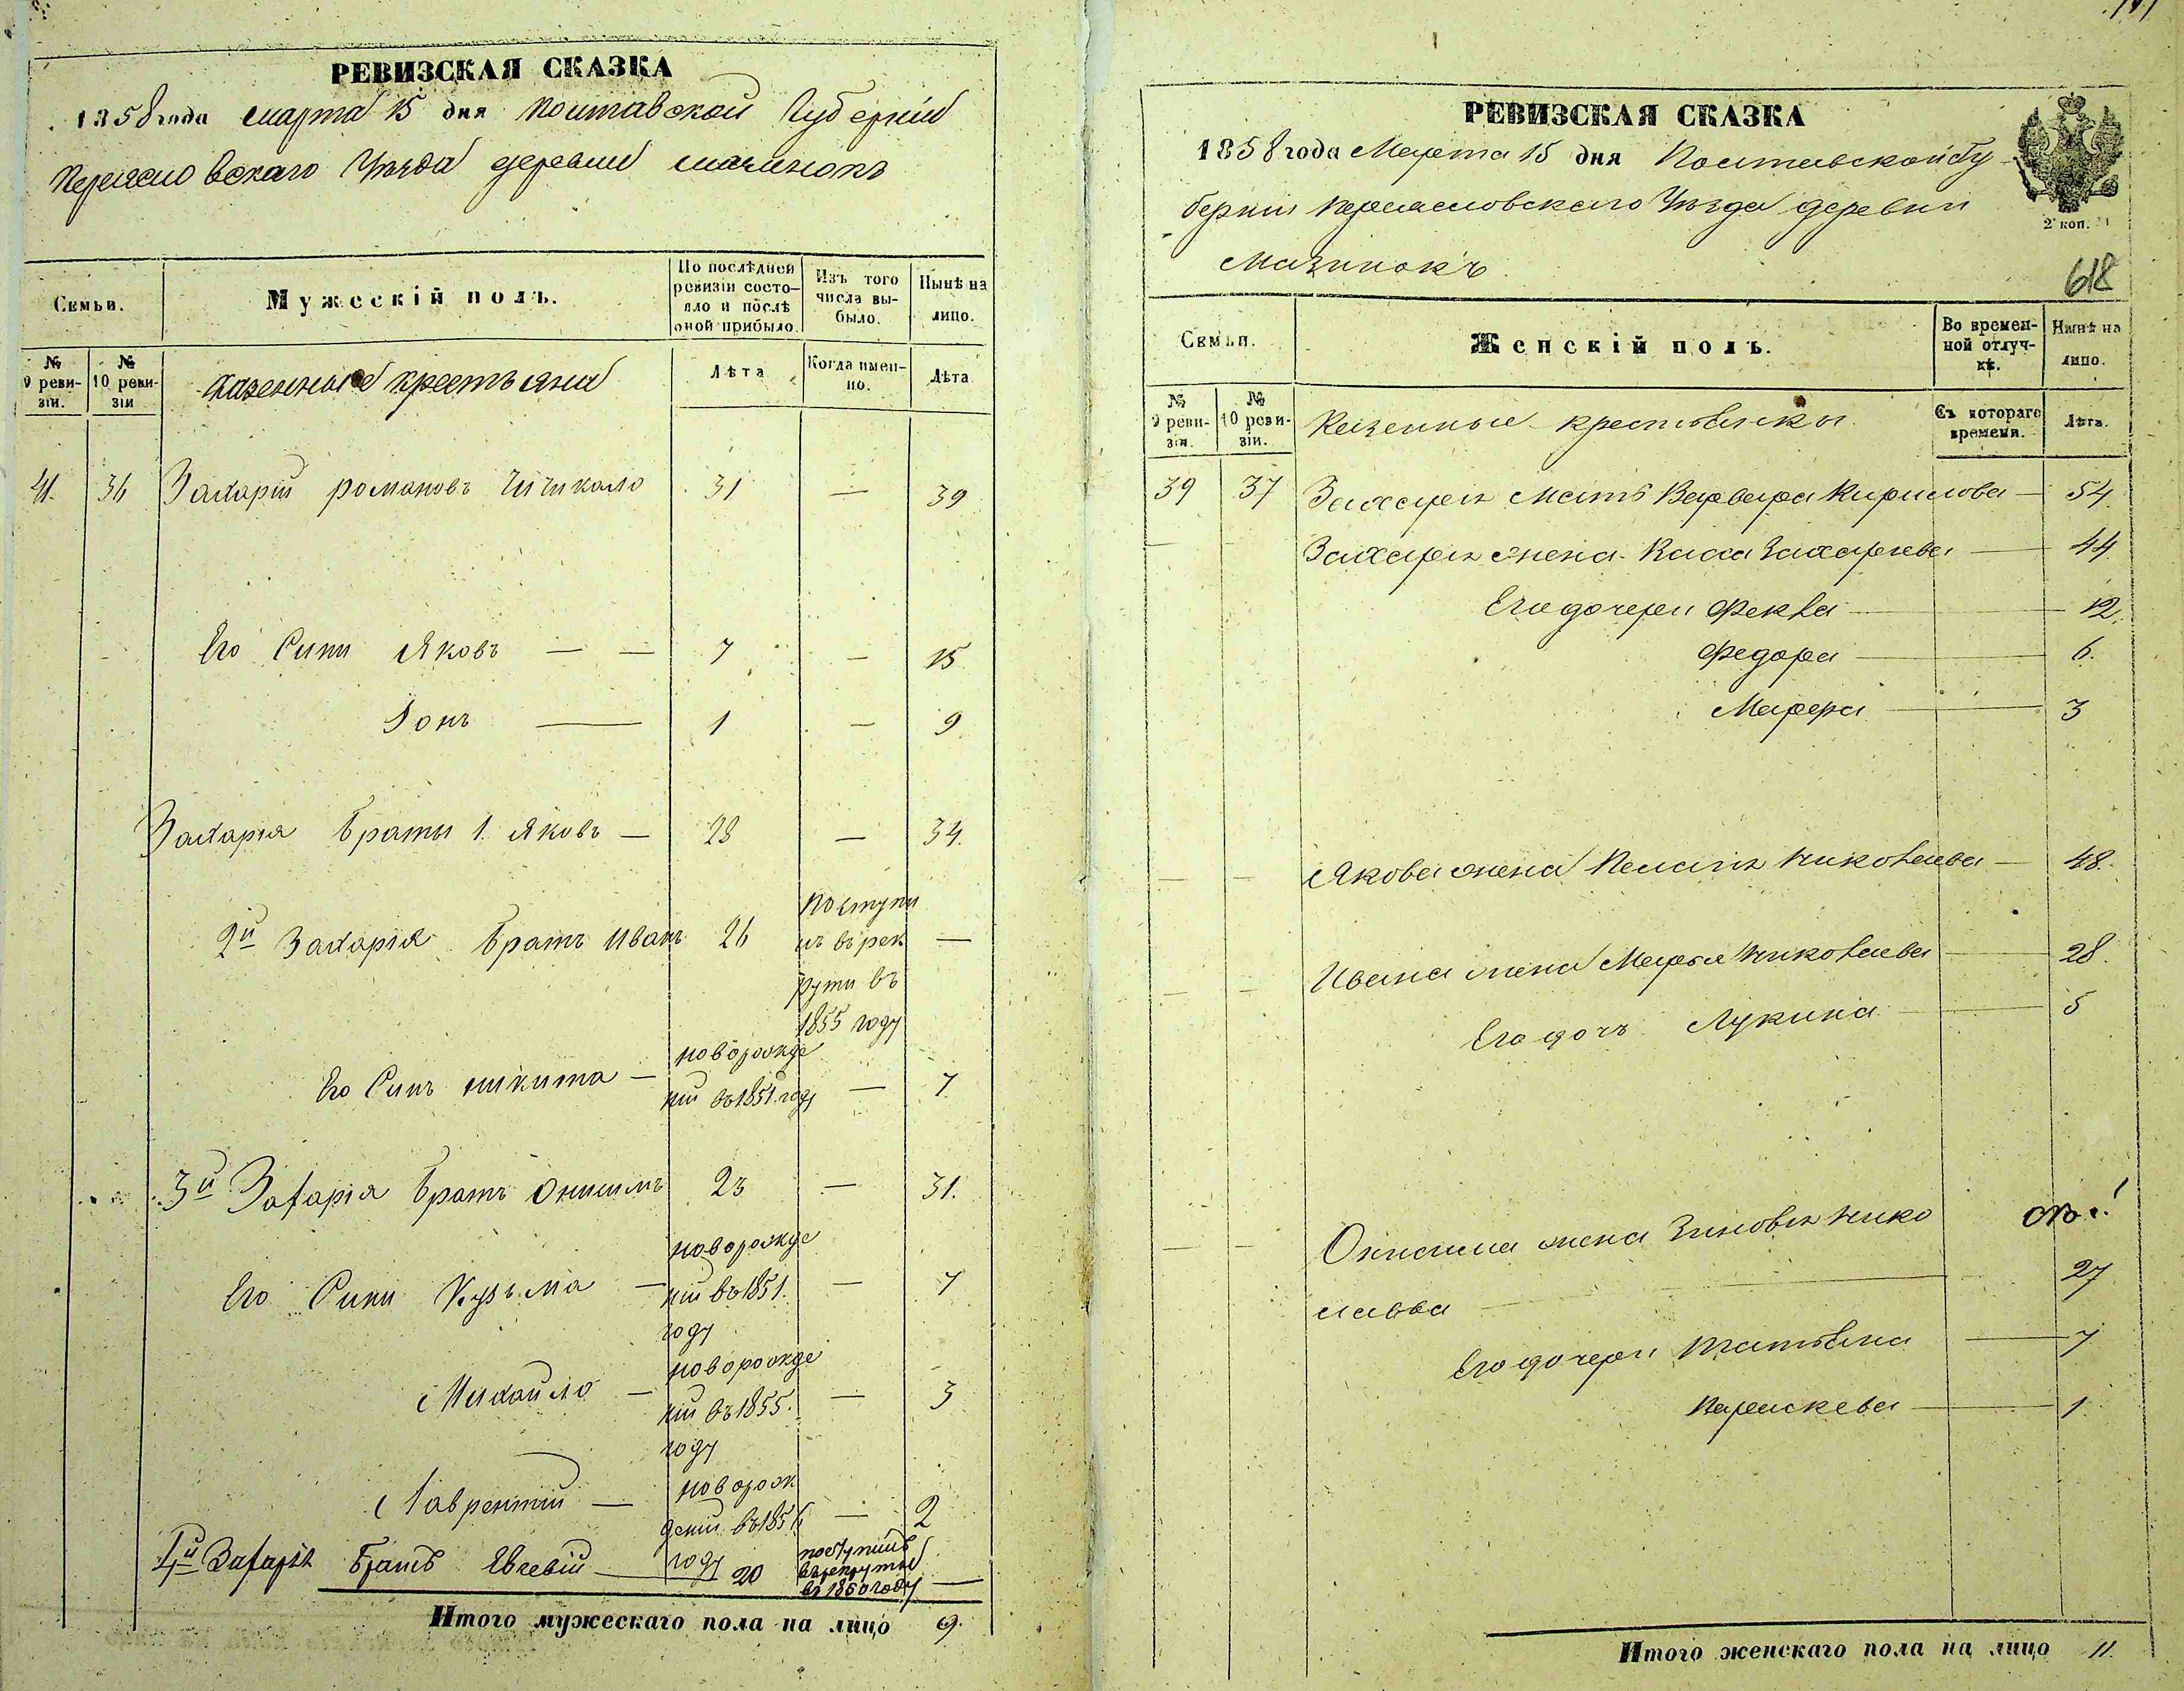 РЕВИЗСКАЯ СКАЗКА
1858 года марта 15 дня Полтавской Губерніи
Переяславскаго Уѣзда деревни Мазинокъ
Семьи.
Мужескій полъ.
По послѣдней ревизіи состояло и послѣ оной прибыло.
Изъ того числа выбыло.
Нынѣ на лицо.
№ 9 ревизіи.
№ 10 ревизіи
Казенные крестьяне
Лѣта
Когда именно.
Лѣта
41. 36 Захарій романовъ Чичикало 31 — 39
Его Сини Яковъ — — 7 — 15
Іонъ — 1 — 9
Захарія браты 1. Яковъ — 28 — 34.
2й Захарія братъ Иванъ 26 Поступилъ въ рекрути въ 1855 году —
Его Синъ никита — новорожденій въ 1851. году — 7
3й Захарія братъ Онисимъ 23 — 31.
Его Сини Кузьма — новорожденій въ 1851. году — 7
Михайло — новорожденій въ 1855. году — 3
Лаврентій — новорожденій въ 1856 году — 2
4й Захарія Братъ Евсевій — 20 поступилъ в рекруты в 1850 году —
Итого мужескаго пола на лицо 9.
РЕВИЗСКАЯ СКАЗКА
1858 года Марта 15 дня Полтавской Гу-
берніи Переяславскаго Уѣзда деревни
Мазинокъ
2 коп.
618
Семьи.
Женскій полъ.
Во временной отлучкѣ.
Нынѣ на лицо.
№ 9 ревизіи.
№ 10 ревизіи.
Казенные крестьянки
Съ котораго времени.
Лѣта.
39 37 Захарія Мать Варвара Кирилова — 54.
Захарія жена Васса Захаріева — 44
Его дочери Фекла — 12.
Федора — 6.
Марфа — 3
Якова жена Пелагія Николаева — 48.
Ивана жена Марья Николаева — 28.
Его дочъ Лукина — 5
Онисима жена Зиновія Нико
лаева — 27
Его дочери Татьяна — 7
Параскева — 1.
Итого женскаго пола на лицо 11.